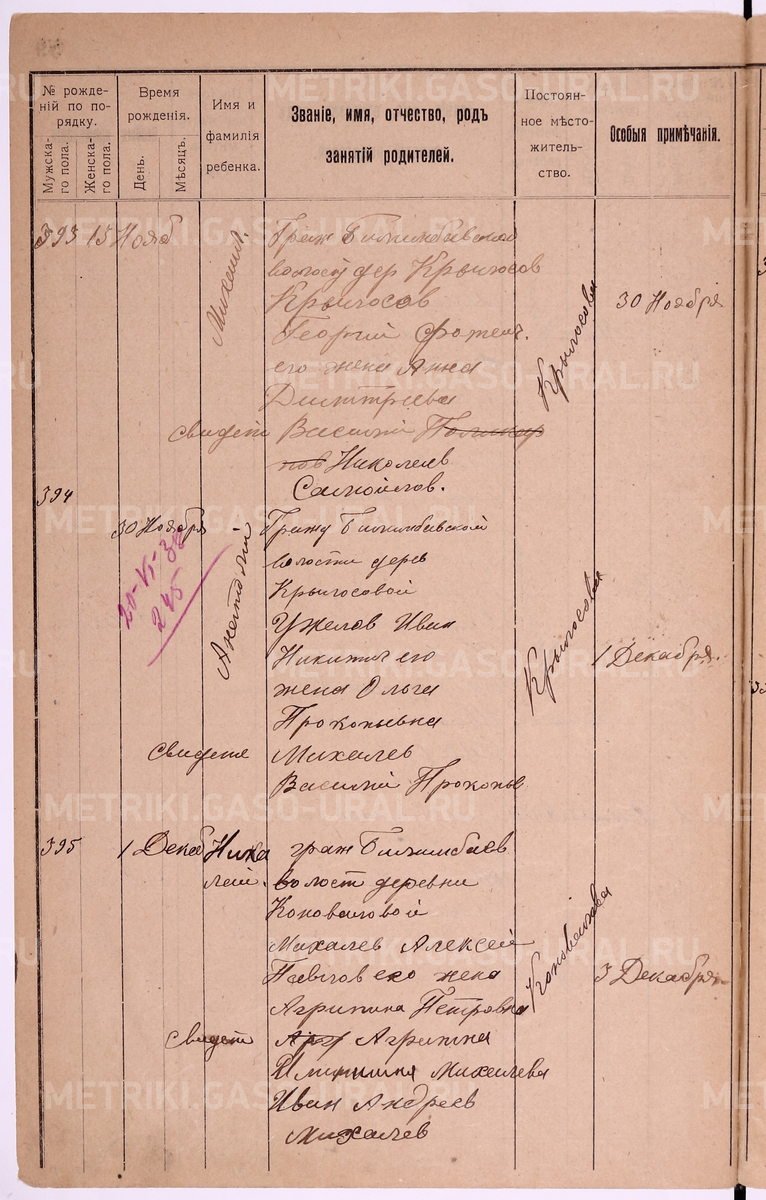 № рожде-
ній по по-
рядку.
Мужска-
го пола.
Женска-
го пола.
Время
рожденія.
День.
Мѣсяцъ.
Имя и
фамилія
ребенка.
Званіе, имя, отчество, родъ
занятій родителей.
Постоян-
ное мѣсто-
житель-
ство.
Особыя примѣчанія.
393 15 Нояб
Михаил.
Граж Билимбаевской
волости дер Крылосов
Крылосов
Георгий
его жена Анна
Дмитриева
свидет Василий
Николаев
Самойлов.
Крылосова
30 Ноября
394
30 Ноября
20-VI-38
245
Анатолий
Гражд Билимбаевской
волости дерев
Крылосовой
Ужегов Иван
Никитич его
жена Ольга
Прокопьевна
свидетя Михалев
Василий Прокопьев
Крылосова
1 Декабря.
395 1 Декаб Нико
лай.
граж Билимбаев
волост деревни
Коноваловой
Михалев Алексей
Павлов его жена
Агрипина Петровна
свидет Агрипина
Михалева
Иван Андреев
Михалев
Коновалова
3 Декабря
METRIKI.GASO-URAL.RU